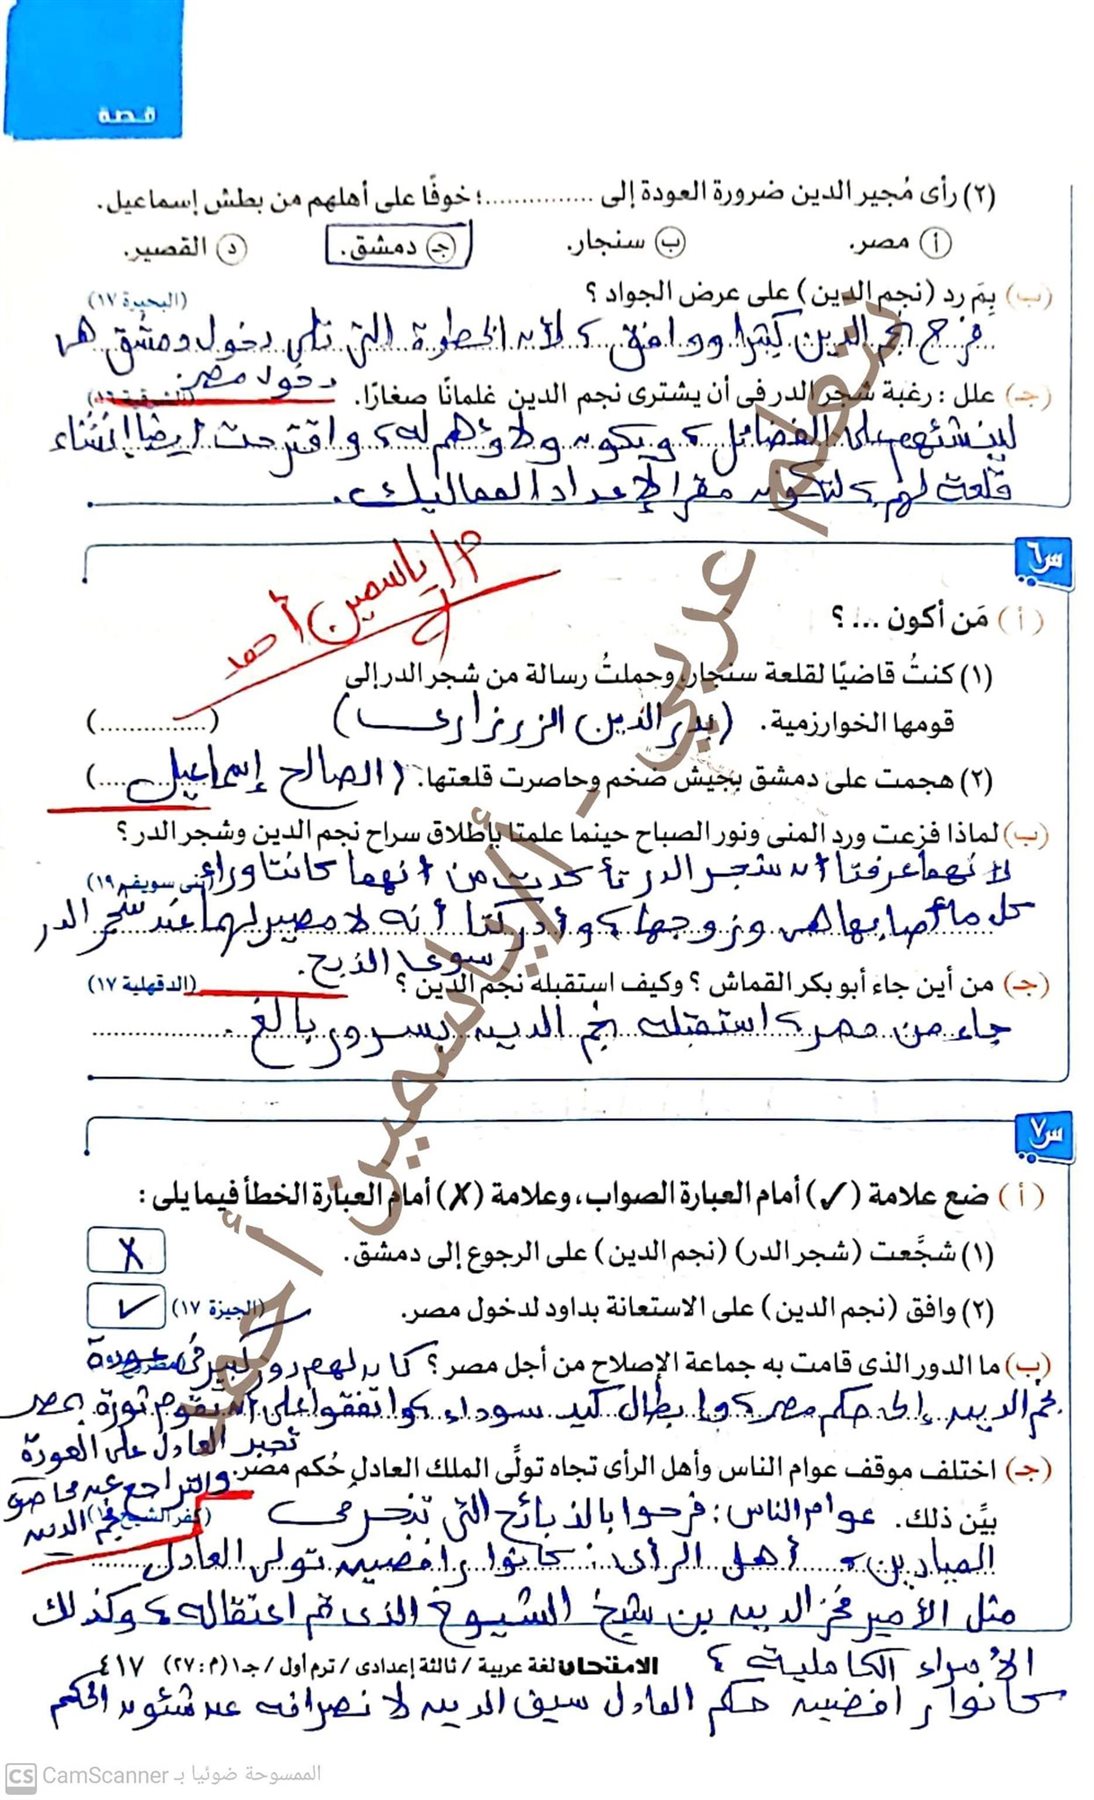 قصة
(٢) رأى مُجير الدين ضرورة العودة إلى ...............؛ خوفًا على أهلهم من بطش إسماعيل.
أ مصر. ب سنجار. جـ دمشق. د القصير.
(ب) بِمَ رد (نجم الدين) على عرض الجواد ؟ (البحيرة ١٧)
فرح نجم الدين كثيرا ووافق ؛ لأن الخطوة التي تلي دخول دمشق هي
دخول مصر.
(جـ) علل : رغبة شجر الدر فى أن يشترى نجم الدين غلمانًا صغارًا. (الشرقية ١٦)
لينشئهم على الفضائل ؛ ويكون ولاؤهم له ؛ واقترحت أيضا إنشاء
قلعة لهم ؛ لتكون مقرا لإعداد المماليك.
س٦
م/ ياسمين أحمد
(أ) مَن أكون ... ؟
(١) كنتُ قاضيًا لقلعة سنجار، وحملتُ رسالة من شجر الدر إلى
قومها الخوارزمية. (بدر الدين الزرزارى) (...............)
(٢) هجمت على دمشق بجيش ضخم وحاصرت قلعتها. (الصالح إسماعيل)
(ب) لماذا فزعت ورد المنى ونور الصباح حينما علمتا بإطلاق سراح نجم الدين وشجر الدر ؟
لأنهما عرفتا أن شجر الدر تأكدت من أنهما كانتا وراء (بنى سويف ١٩)
كل ما أصابها هى وزوجها ؛ وأدركتا أنه لا مصير لهما عند شجر الدر
سوى الذبح.
(جـ) من أين جاء أبو بكر القماش ؟ وكيف استقبله نجم الدين ؟ (الدقهلية ١٧)
جاء من مصر ؛ استقبله نجم الدين بسرور بالغ.
س٧
(أ) ضع علامة (✓) أمام العبارة الصواب، وعلامة (✗) أمام العبارة الخطأ فيما يلى :
(١) شجَّعت (شجر الدر) (نجم الدين) على الرجوع إلى دمشق. X
(٢) وافق (نجم الدين) على الاستعانة بداود لدخول مصر. (الجيزة ١٧) ✓
(ب) ما الدور الذى قامت به جماعة الإصلاح من أجل مصر ؟ كان لهم دور كبير فى عودة
نجم الدين إلى حكم مصر ؛ وإبطال كيد سوداء ؛ واتفقوا على أن تقوم ثورة بمصر
تجبر العادل على العودة
(جـ) اختلف موقف عوام الناس وأهل الرأى تجاه تولَّى الملك العادل حُكم مصر.
والتراجع عن محاصرة
نجم الدين
بيَّن ذلك. عوام الناس : فرحوا بالذبائح التي تنحر فى (كفر الشيخ ١٩)
الميادين ؛ أهل الرأى : كانوا رافضين تولى العادل
مثل الأمير فخر الدين بن شيخ الشيوخ الذى تم اعتقاله ؛ وكذلك
الأمراء الكاملية ؛
الامتحان لغة عربية / ثالثة إعدادى / ترم أول / جـ١ (م : ٢٧) ٤١٧
كانوا رافضين حكم العادل سيف الدين لانصرافه عن شئون الحكم
نتعلم عربي - أ/ياسمين أحمد
CS CamScanner الممسوحة ضوئيا بـ